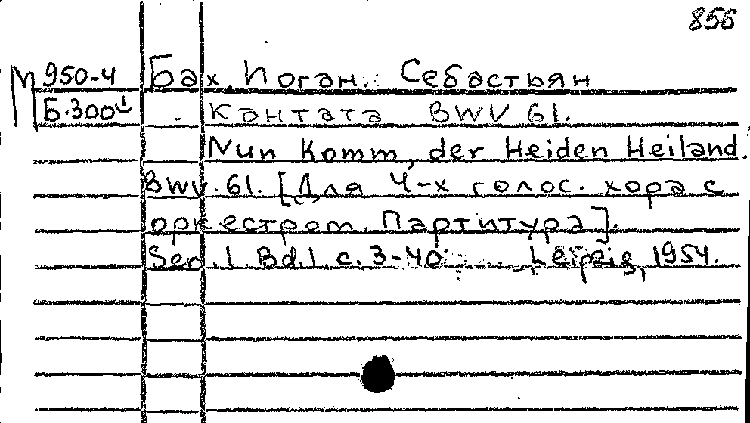 856
М 950-4 Бах, Иоган. Себастьян
Б.300 1 Кантата BWV 61.
Nun Komm, der Heiden Heiland.
BWV. 61. [Для 4-х голос. хора с
оркестром. Партитура].
Ser. 1 Bd. 1 с. 3-40. Leipzig, 1954.